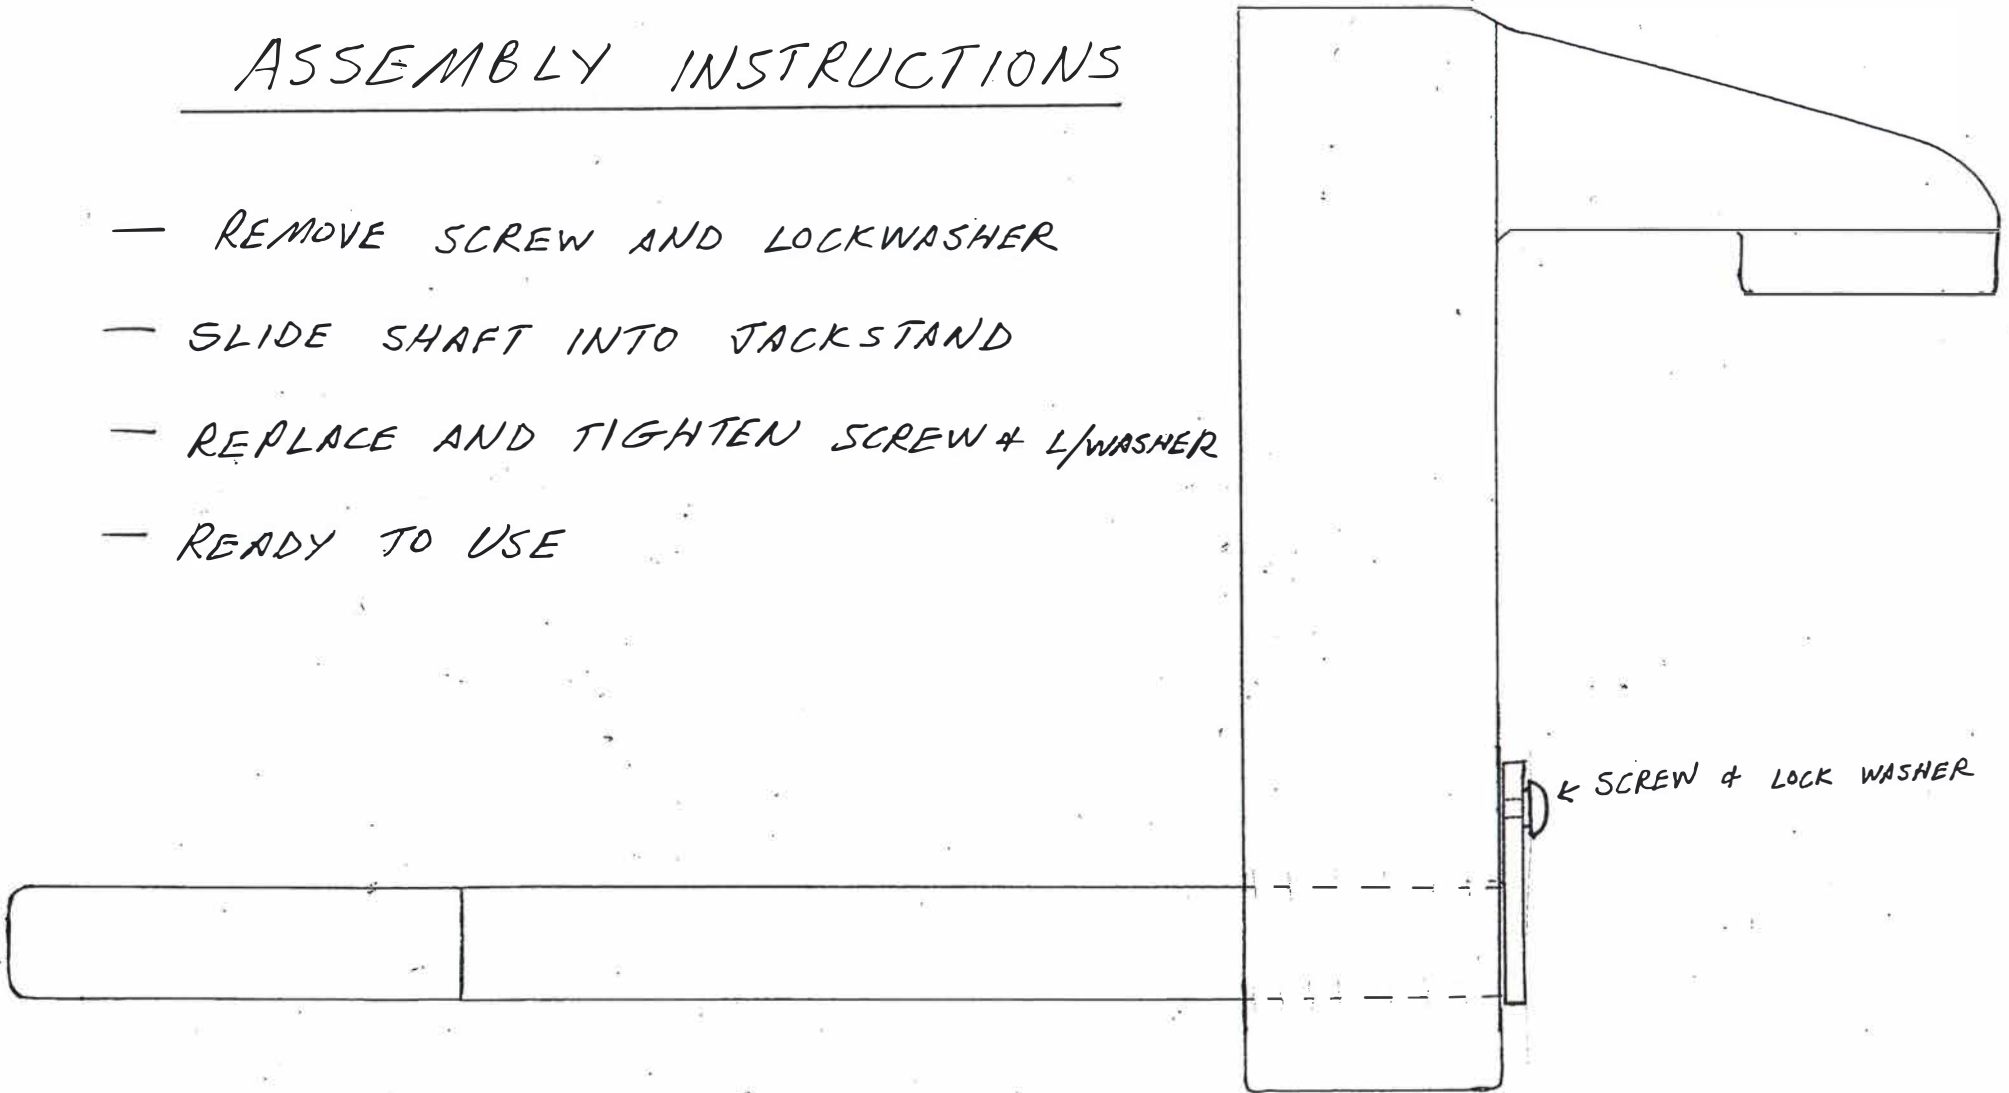 ASSEMBLY INSTRUCTIONS
— REMOVE SCREW AND LOCKWASHER
— SLIDE SHAFT INTO JACKSTAND
— REPLACE AND TIGHTEN SCREW & L/WASHER
— READY TO USE
SCREW & LOCK WASHER